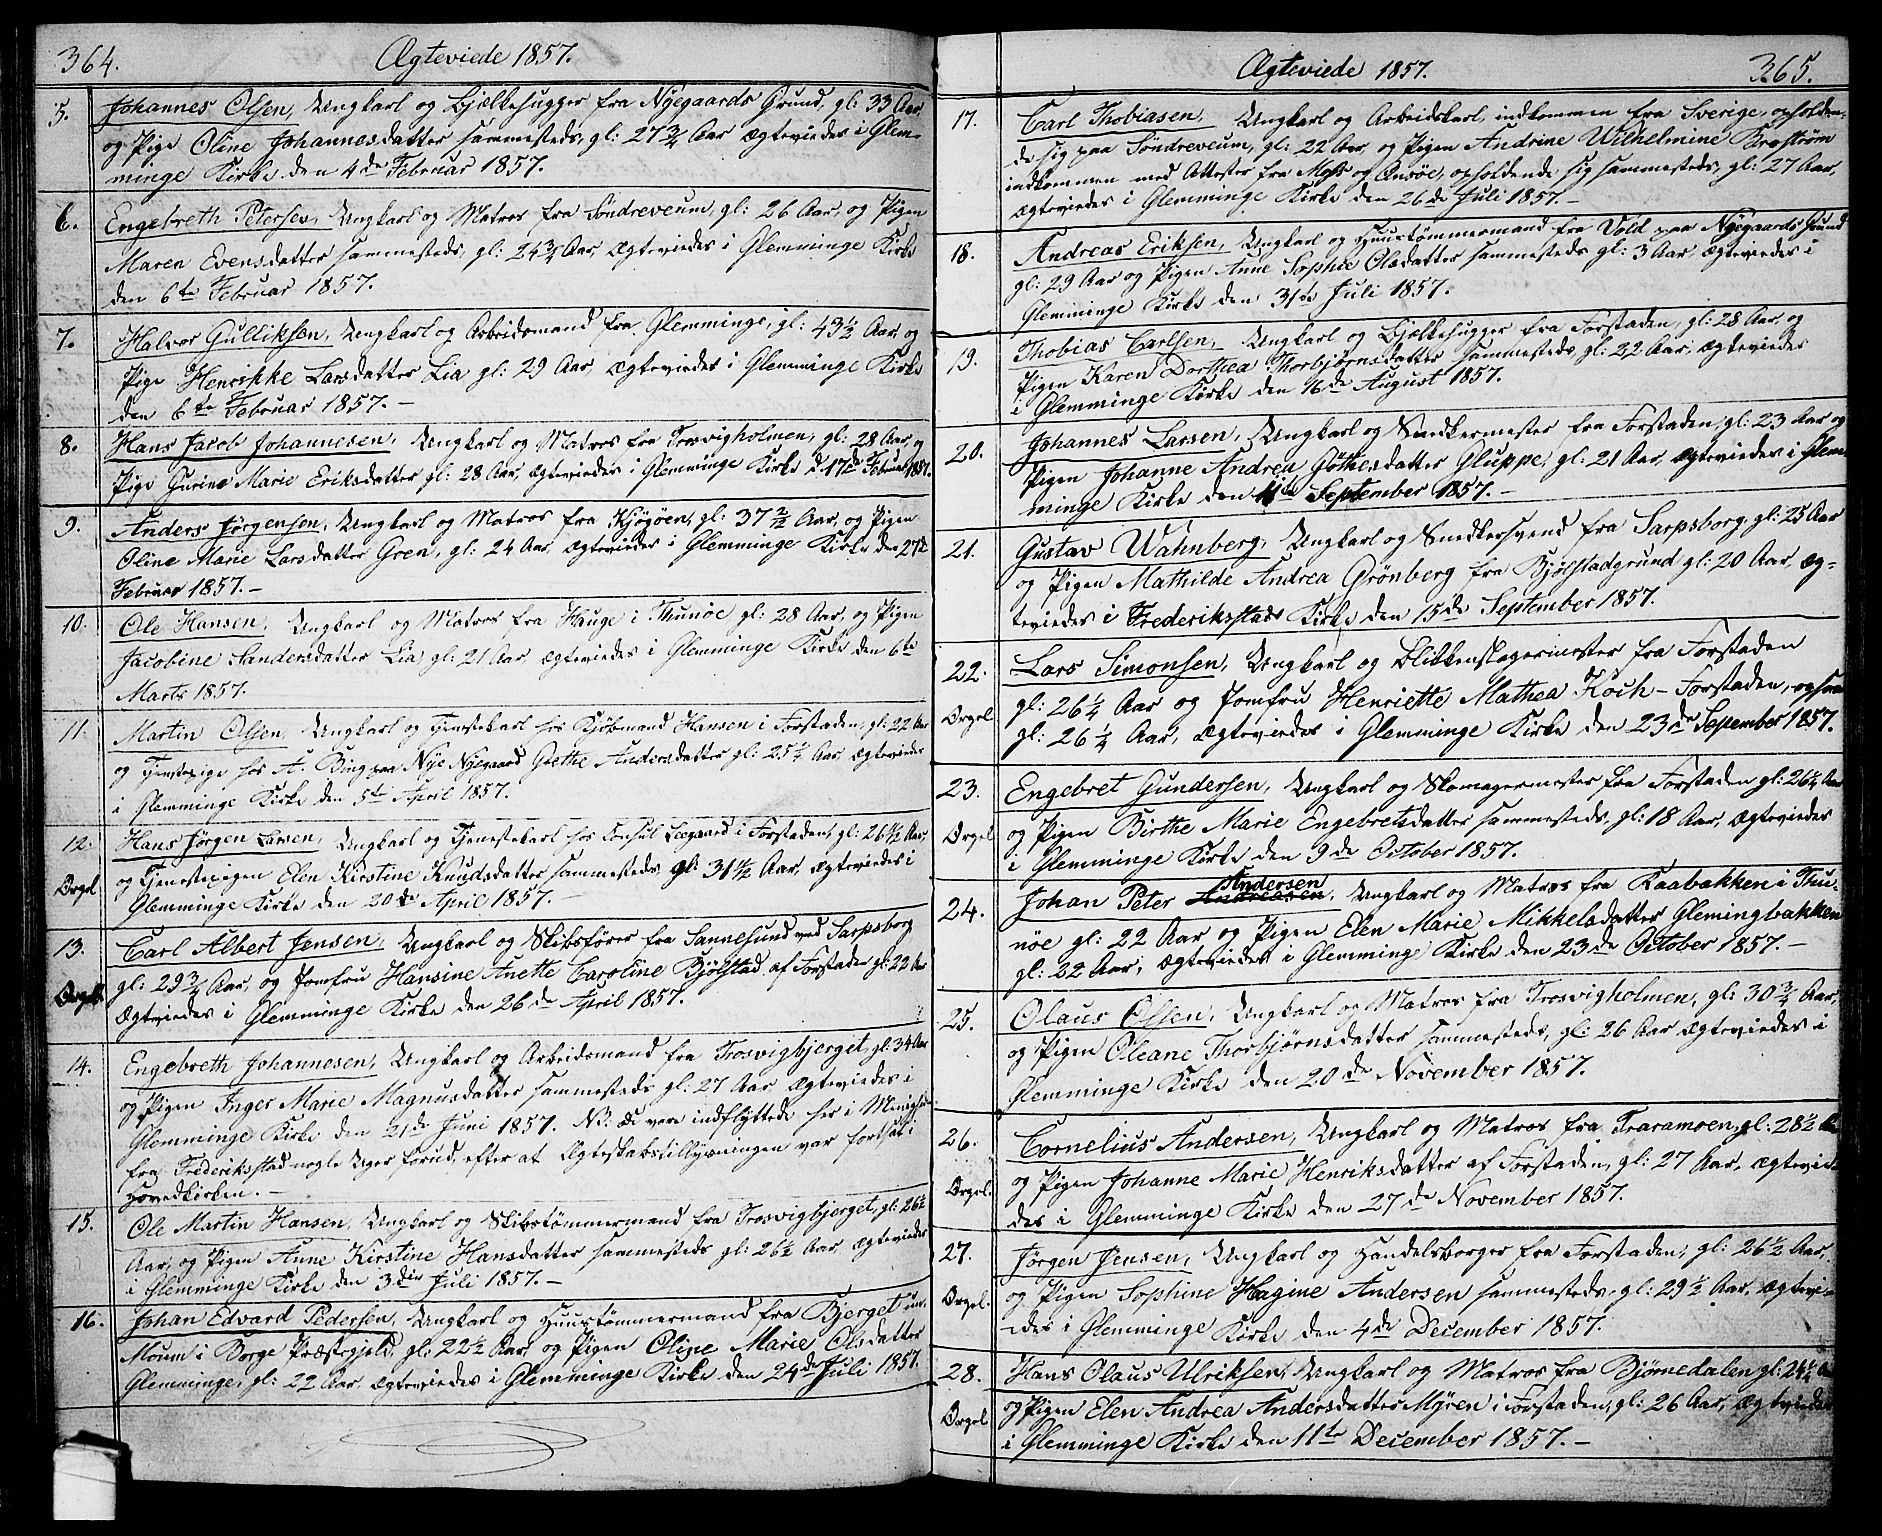 364.
Ægteviede 1857.
5. Johannes Olsen, Ungkarl og Bjælkehugger fra Nyegaards Grund, gl: 33 Aar,
og Pige Oline Johannesdatter sammesteds, gl: 27 3/4 Aar Ægteviedes i Glem-
minge Kirke den 4de Februar 1857.
6. Engebreth Petersen, Ungkarl og Matros fra Söndreveum, gl: 26 Aar, og Pigen
Maren Evensdatter sammesteds, gl: 24 3/4 Aar, Ægteviedes i Glemminge Kirke
den 6te Februar 1857.
7. Halvor Gulliksen, Ungkarl og Arbeidsmand fra Glemminge, gl: 49 1/2 Aar, og
Pige Henrikke Larsdatter Lia gl: 29 Aar, Ægteviedes i Glemminge Kirke
den 6te Februar 1857. –
8. Hans Jacob Johannesen, Ungkarl og Matros fra Trosvigholmen, gl: 28 Aar, og
Pige Gurine Marie Eriksdatter gl: 28 Aar, Ægteviedes i Glemminge Kirke d. 17de Februar 1857.
9. Anders Jörgensen, Ungkarl og Matros fra Kjøgøen, gl: 37 Aar, og Pigen
Oline Marie Larsdatter Gren, gl: 24 Aar Ægteviedes i Glemminge Kirke den 27de
Februar 1857. –
10. Ole Hansen, Ungkarl og Matros fra Hauge i Thunöe gl: 28 Aar, og Pigen
Jacobine Sandersdatter Lia gl: 21 Aar, Ægteviedes i Glemminge Kirke den 6te
Marts 1857.
11. Martin Olsen, Ungkarl og Tjenstekarl hos Kjøbmand Hansen i Forstaden, gl: 22 Aar
og Tjenstepige hos A. Bing paa Nye Nyegaard Grethe Andersdatter gl: 25 1/2 Aar, Ægteviedes
i Glemminge Kirke den 5te April 1857.
12. Hans Jörgen Larsen, Ungkarl og Tjenestekarl hos Consul Leegaard i Forstaden, gl: 26 1/2 Aar,
Orgel. og Tjenestepigen Elen Kirstine Knudsdatter sammesteds gl: 31 1/2 Aar, Ægteviedes i
Glemminge Kirke den 20de April 1857. –
13. Carl Albert Jensen, Ungkarl og Skibsfører fra Sannesund ved Sarpsborg
Orgel. gl: 29 3/4 Aar, og Jomfru Hansine Anette Caroline Bjølstad af Forstaden gl: 22 Aar
Ægteviedes i Glemminge Kirke den 26de April 1857.
14. Engebreth Johannesen, Ungkarl og Arbeidsmand fra Trosvigbjerget, gl: 34 Aar
og Pigen Inger Marie Magnusdatter sammesteds gl: 27 Aar Ægteviedes i
Glemminge Kirke den 21de Juni 1857. NB: De vare indflyttede her i Menigheden
fra Frederiksstad nogle Uger forud, efter at Ægteskabstillysningen var fortsat i
Hovedkirken. –
15. Ole Martin Hansen, Ungkarl og Skibstømmermand fra Trosvigbjerget, gl: 26 1/2
Aar, og Pigen Anne Kirstine Hansdatter sammesteds gl: 26 1/2 Aar, Ægteviedes
i Glemminge Kirke den 3die Juli 1857. –
16. Johan Edvard Pedersen, Ungkarl og Huustømmermand fra Bjerget un.
Moum i Borge Præstegjeld, gl: 22 1/2 Aar, og Pigen Oline Marie Olsdatter
Glemminge, gl: 22 Aar, Ægteviedes i Glemminge Kirke den 24de Juli 1857.
Ægteviede 1857.
365.
17. Carl Thobiasen, Ungkarl og Arbeidskarl, indkommen fra Sverige, opholden-
de sig paa Söndreveum, gl: 22 Aar, og Pigen Andrine Wilhelmine Broström
indkommen med Attester fra Moss og Onsöe, opholdende sig sammesteds, gl: 27 Aar,
Ægteviedes i Glemminge Kirke den 26de Juli 1857. –
18. Andreas Eriksen, Ungkarl og Huustømmermand fra Vold paa Nyegaards Grund
gl: 29 Aar og Pigen Anne Sophie Olsdatter sammesteds gl: 3 Aar, Ægteviedes i
Glemminge Kirke den 31te Juli 1857.
19. Thobias Carlsen, Ungkarl og Bjelkehugger fra Forstaden, gl: 28 Aar, og
Pigen Karen Dorthea Thorbjörnsdatter sammesteds, gl: 22 Aar, Ægteviedes
i Glemminge Kirke den 16de August 1857.
20. Johannes Larsen, Ungkarl og Snedkermester fra Forstaden, gl: 23 Aar og
Pigen Johanne Andrea Göthesdatter Gluppe, gl: 21 Aar, Ægteviedes i Glem-
minge Kirke den 11te September 1857. –
21. Gustav Wahnberg, Ungkarl og Snedkersvend fra Sarpsborg, gl: 25 Aar
og Pigen Mathilde Andrea Grönberg fra Bjølstadgrund gl: 20 Aar, Æg-
teviedes i Frederiksstads Kirke den 15de September 1857.
22. Lars Simonsen, Ungkarl og Blikkenslagermester fra Forstaden
Orgel gl: 26 1/4 Aar og Jomfru Henriette Mathea Koch – Forstaden, ogsaa
gl: 26 1/4 Aar, Ægteviedes i Glemminge Kirke den 23de September 1857.
23. Engebret Gundersen, Ungkarl og Skomagermester fra Forstaden gl: 26 1/4 Aar
Orgel og Pigen Birthe Marie Engebretsdatter sammesteds, gl: 18 Aar, Ægteviedes
i Glemminge Kirke den 9de October 1857.
Andersen
24. Johan Peter Andreasen, Ungkarl og Matros fra Raabakken i Thu-
nöe gl: 22 Aar og Pigen Elen Marie Mikkelsdatter Glemingbakken
gl: 22 Aar, Ægteviedes i Glemminge Kirke den 23de October 1857. –
25. Olaus Olsen, Ungkarl og Matros fra Trosvigholmen, gl: 30 3/4 Aar,
og Pigen Oleane Thorbjørnsdatter sammesteds, gl: 26 Aar Ægteviedes i
Glemminge Kirke den 20de November 1857.
26. Cornelius Andersen, Ungkarl og Matros fra Traramoen, gl: 28 1/2 Aar
Orgel. og Pigen Johanne Marie Henriksdatter af Forstaden, gl: 27 Aar, Ægtevie-
des i Glemminge Kirke den 27de November 1857.
27. Jørgen Jensen, Ungkarl og Handelsborger fra Forstaden, gl: 26 1/2 Aar,
Orgel. og Pigen Sophine Hagine Andersen sammesteds, gl: 29 1/2 Aar, Ægtevie-
des i Glemminge Kirke den 4de December 1857.
28. Hans Olaus Ulriksen, Ungkarl og Matros fra Bjørnedalen gl: 24 1/2 Aar
Orgel. og Pigen Elen Andrea Andersdatter Myren i Forstaden, gl: 26 Aar, Ægteviedes
i Glemminge Kirke den 11te December 1857. –